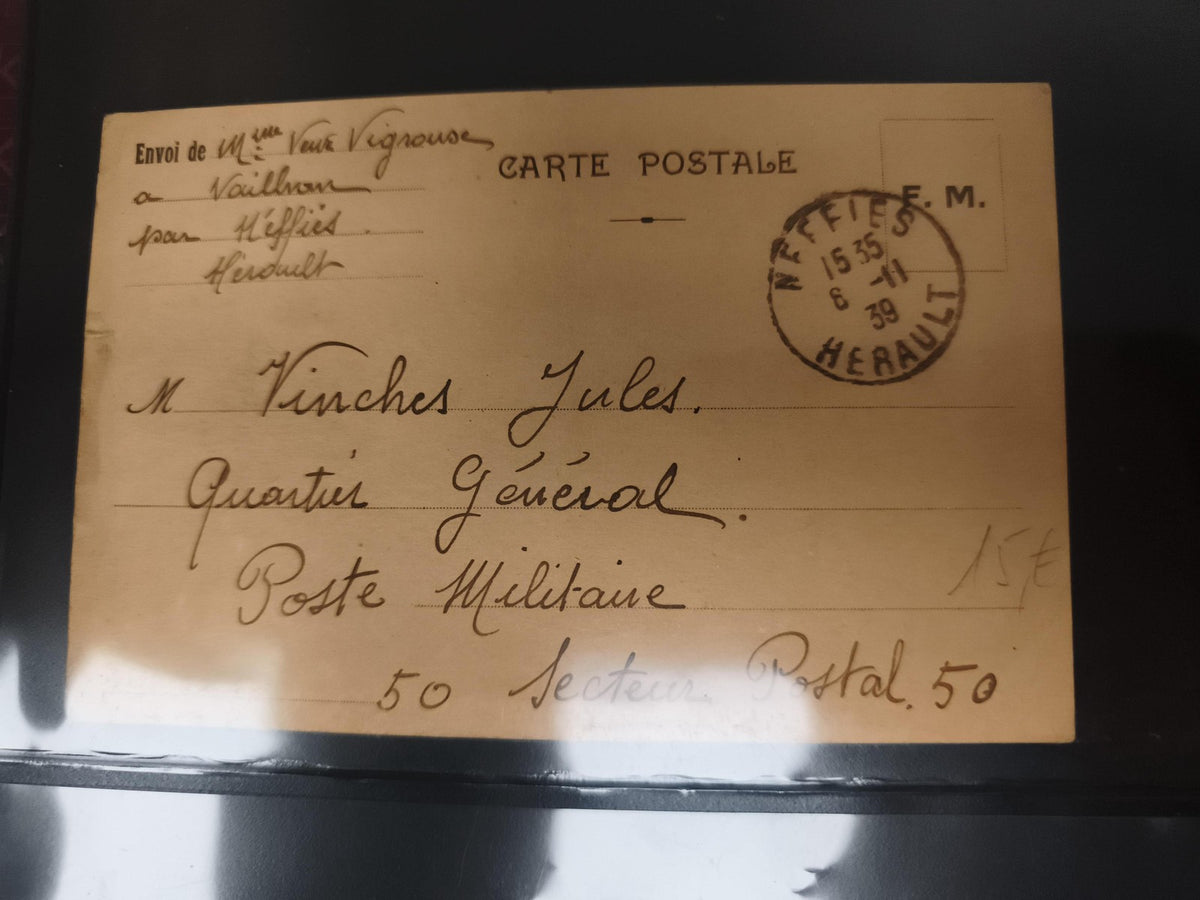 Envoi de Mme Veuve Vigrouse
a Vailhan
par Néffiés.
Hérault
CARTE POSTALE
F. M.
NEFFIES
15 35
6 -11
39
HERAULT
M Vinches Jules.
Quartier Général.
Poste Militaire
15€
50 Secteur Postal. 50